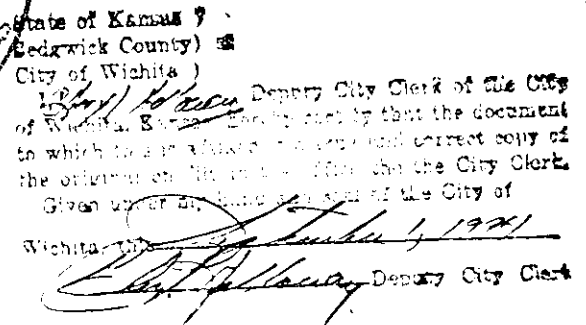 State of Kansas )
Sedgwick County) ss
City of Wichita )
I, Deputy City Clerk of the City
of Wichita, Kansas hereby certify that the document
to which this is attached is a true and correct copy of
the original on file in the office of the City Clerk.
Given under my hand and seal of the City of
Wichita, this September 1, 19
Deputy City Clerk